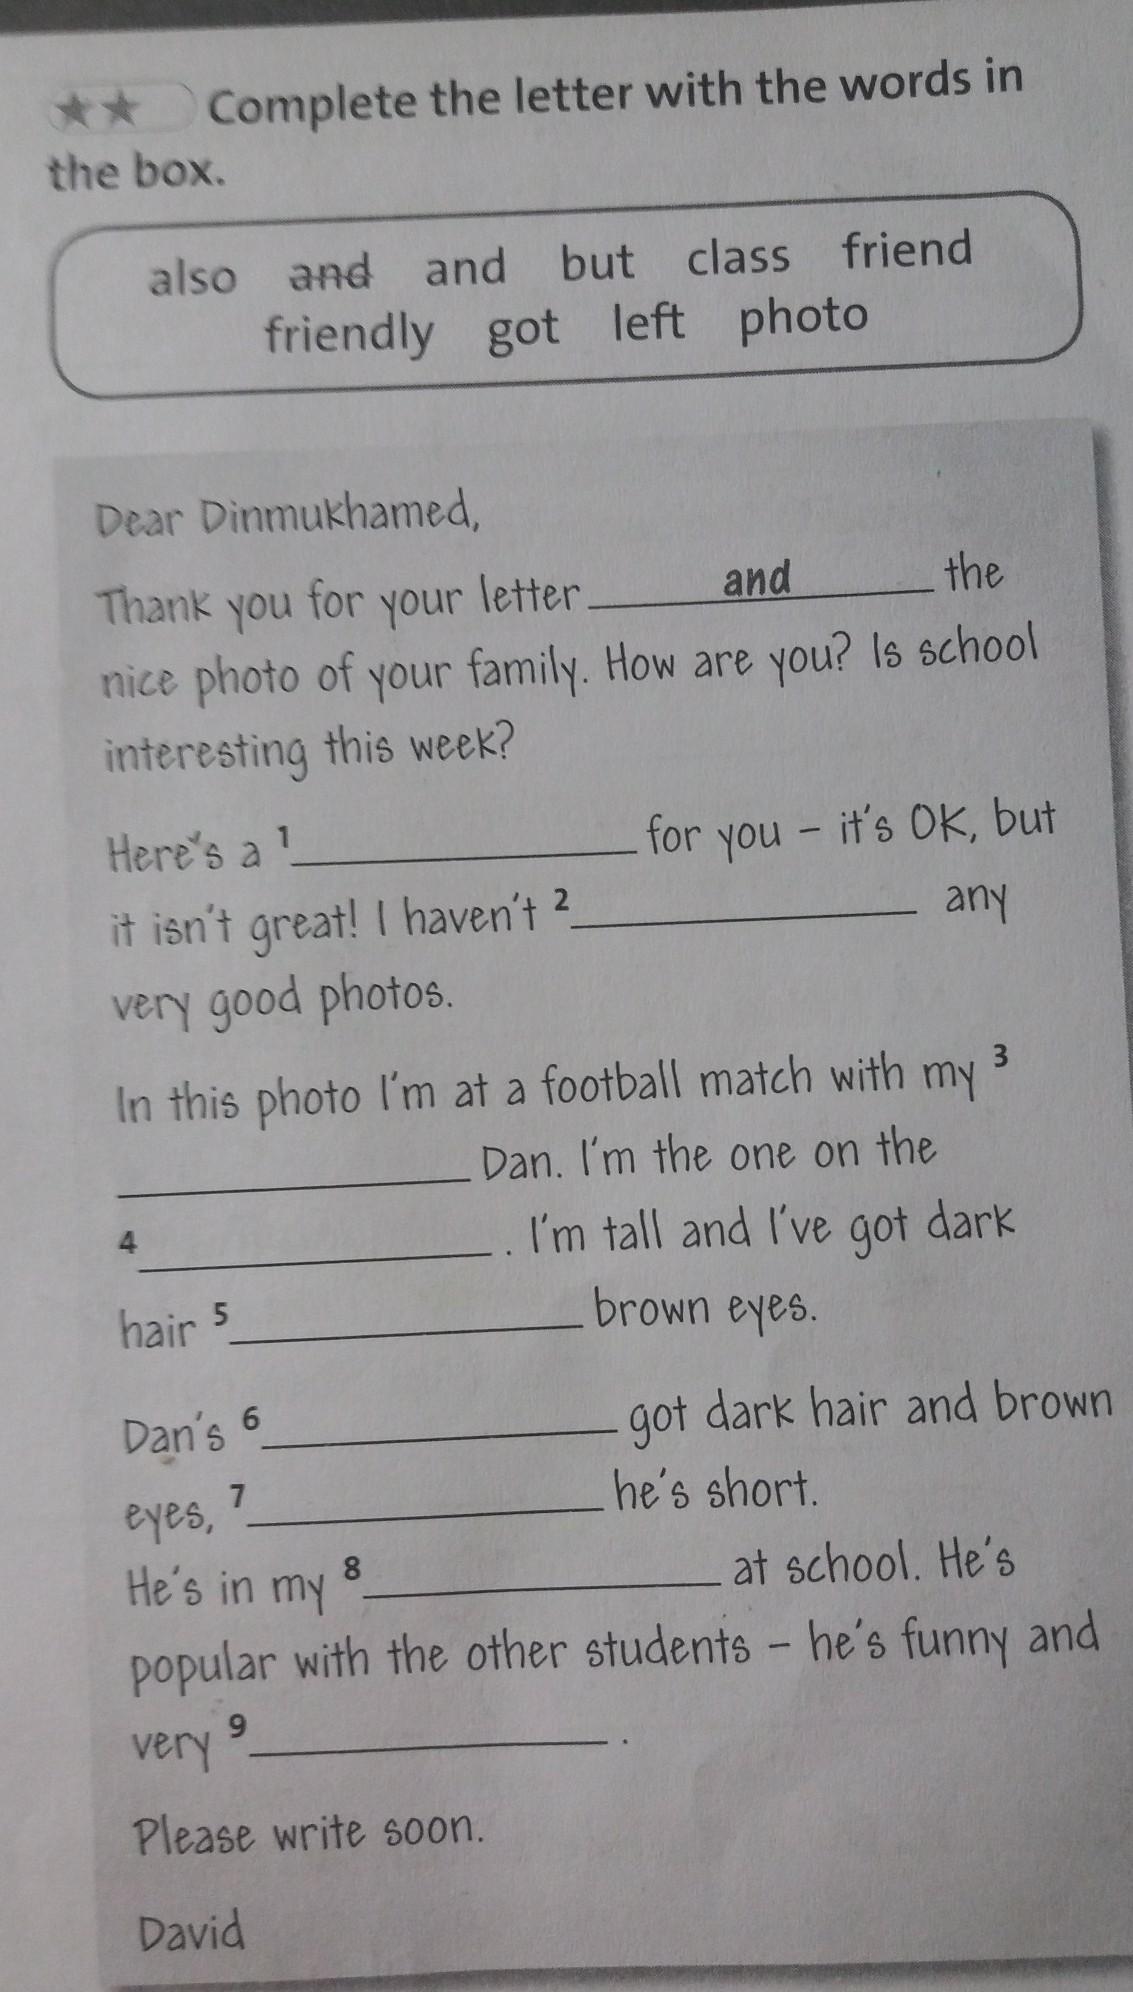 ★★ Complete the letter with the words in
the box.
also and and but class friend
friendly got left photo
Dear Dinmukhamed,
Thank you for your letter and the
nice photo of your family. How are you? Is school
interesting this week?
Here's a 1 for you – it's OK, but
it isn't great! I haven't 2 any
very good photos.
In this photo I'm at a football match with my 3
Dan. I'm the one on the
4 . I'm tall and I've got dark
hair 5 brown eyes.
Dan's 6 got dark hair and brown
eyes, 7 he's short.
He's in my 8 at school. He's
popular with the other students – he's funny and
very 9 .
Please write soon.
David